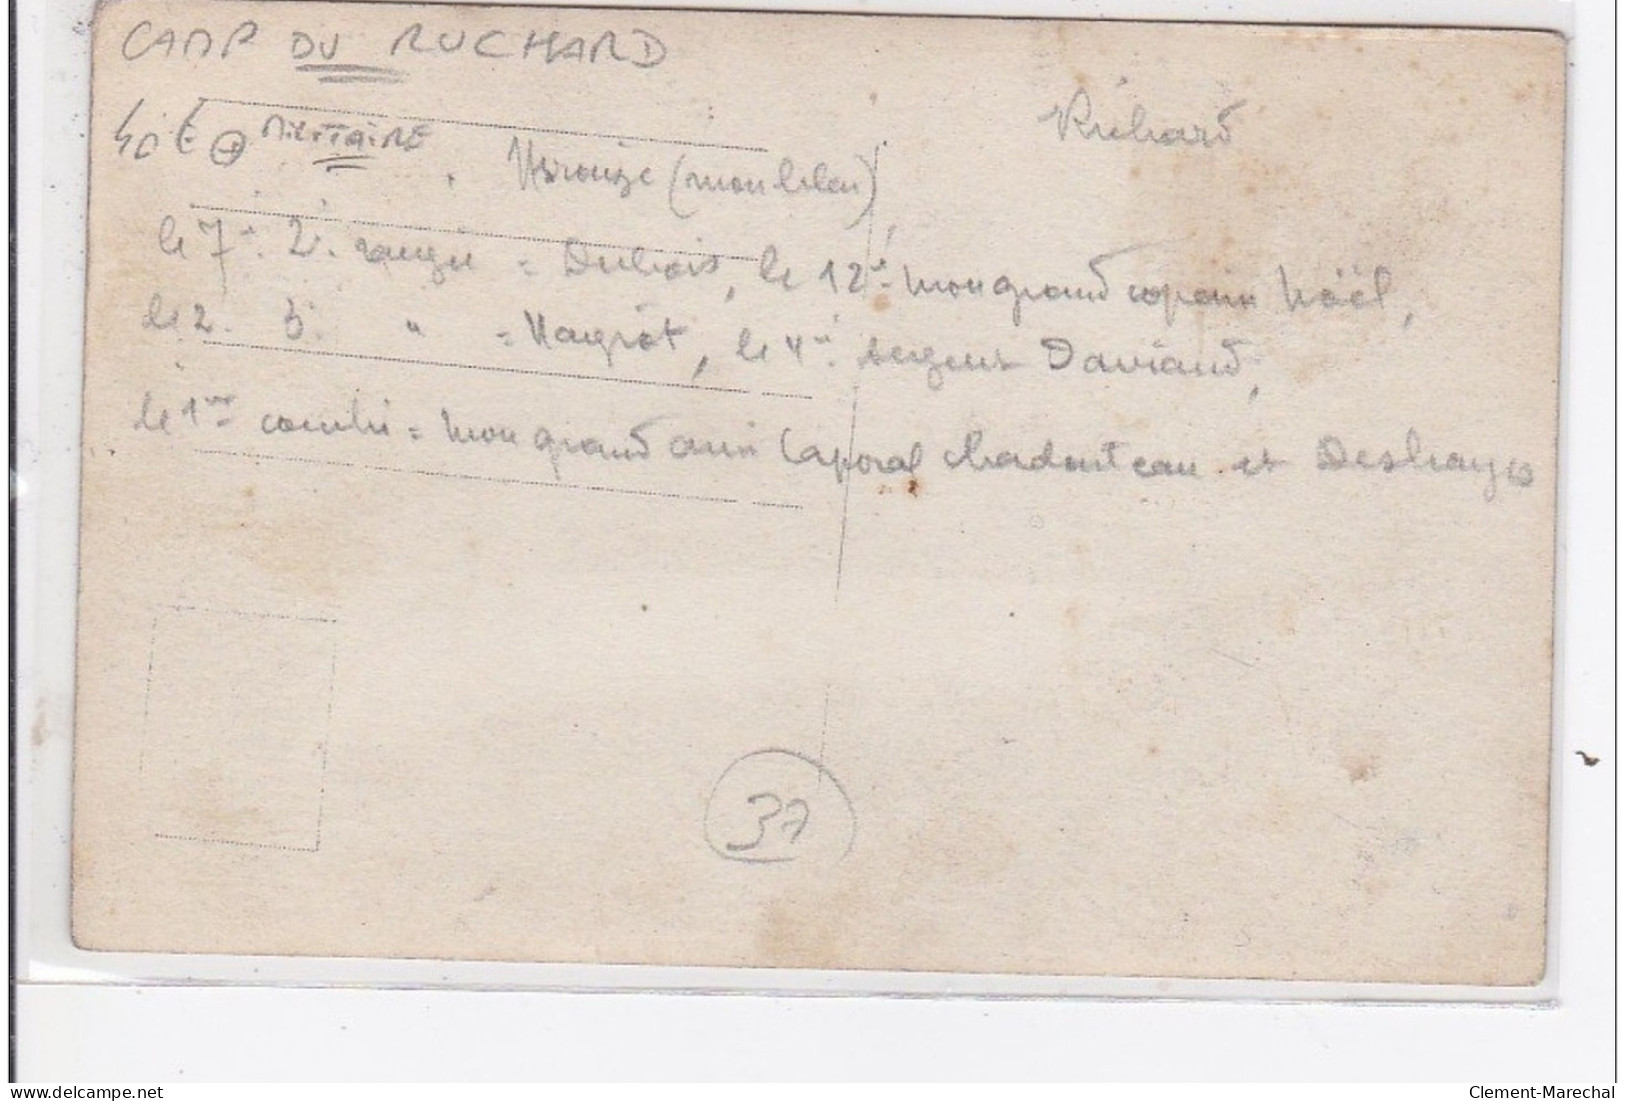 CAMP DU RUCHARD
Richard
40 € MILITAIRE
(mon bleu),
le 7e 2e rangée = Dubois, le 12e mon grand copain Noël,
le 2. 3e " = Naygrot, le 4e sergent Daviaud,
le 1er couché = mon grand ami Caporal Chadeuteau et Deshayes
37
delcampe.net
Clement-Marechal